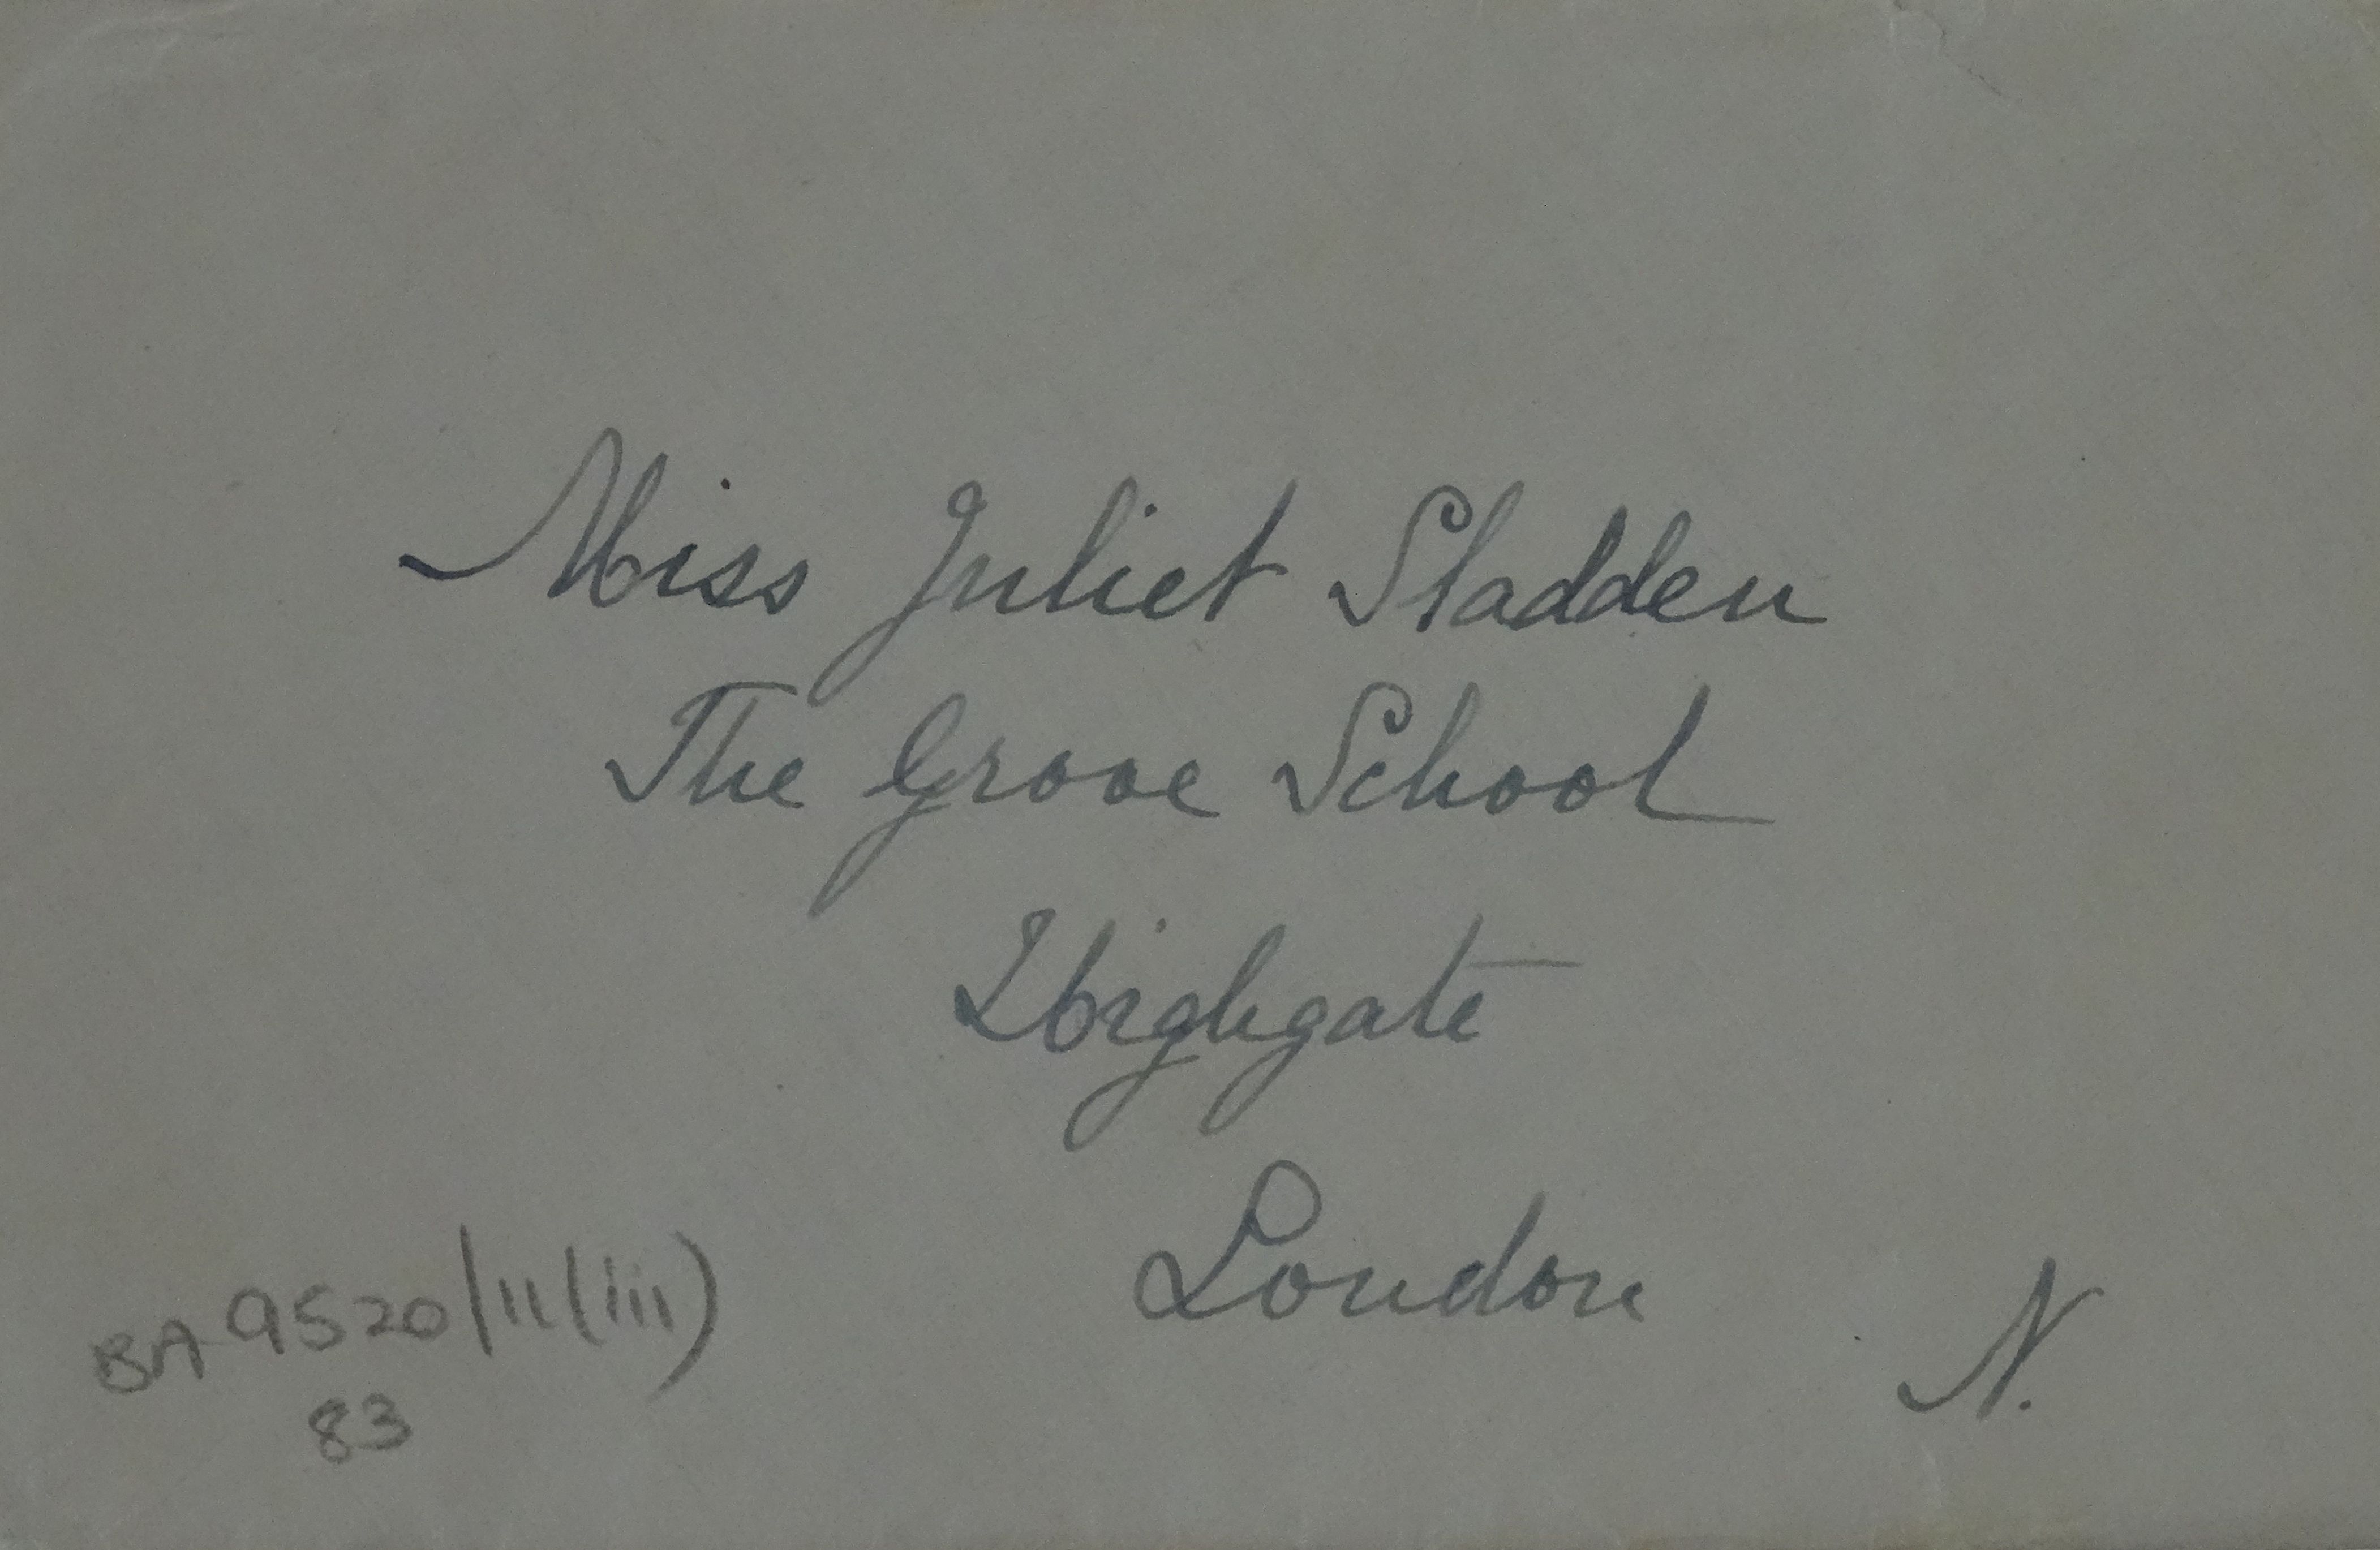 Miss Juliet Sladden
The Grove School
Highgate
London
N.
BA 9520/11(iii)
83